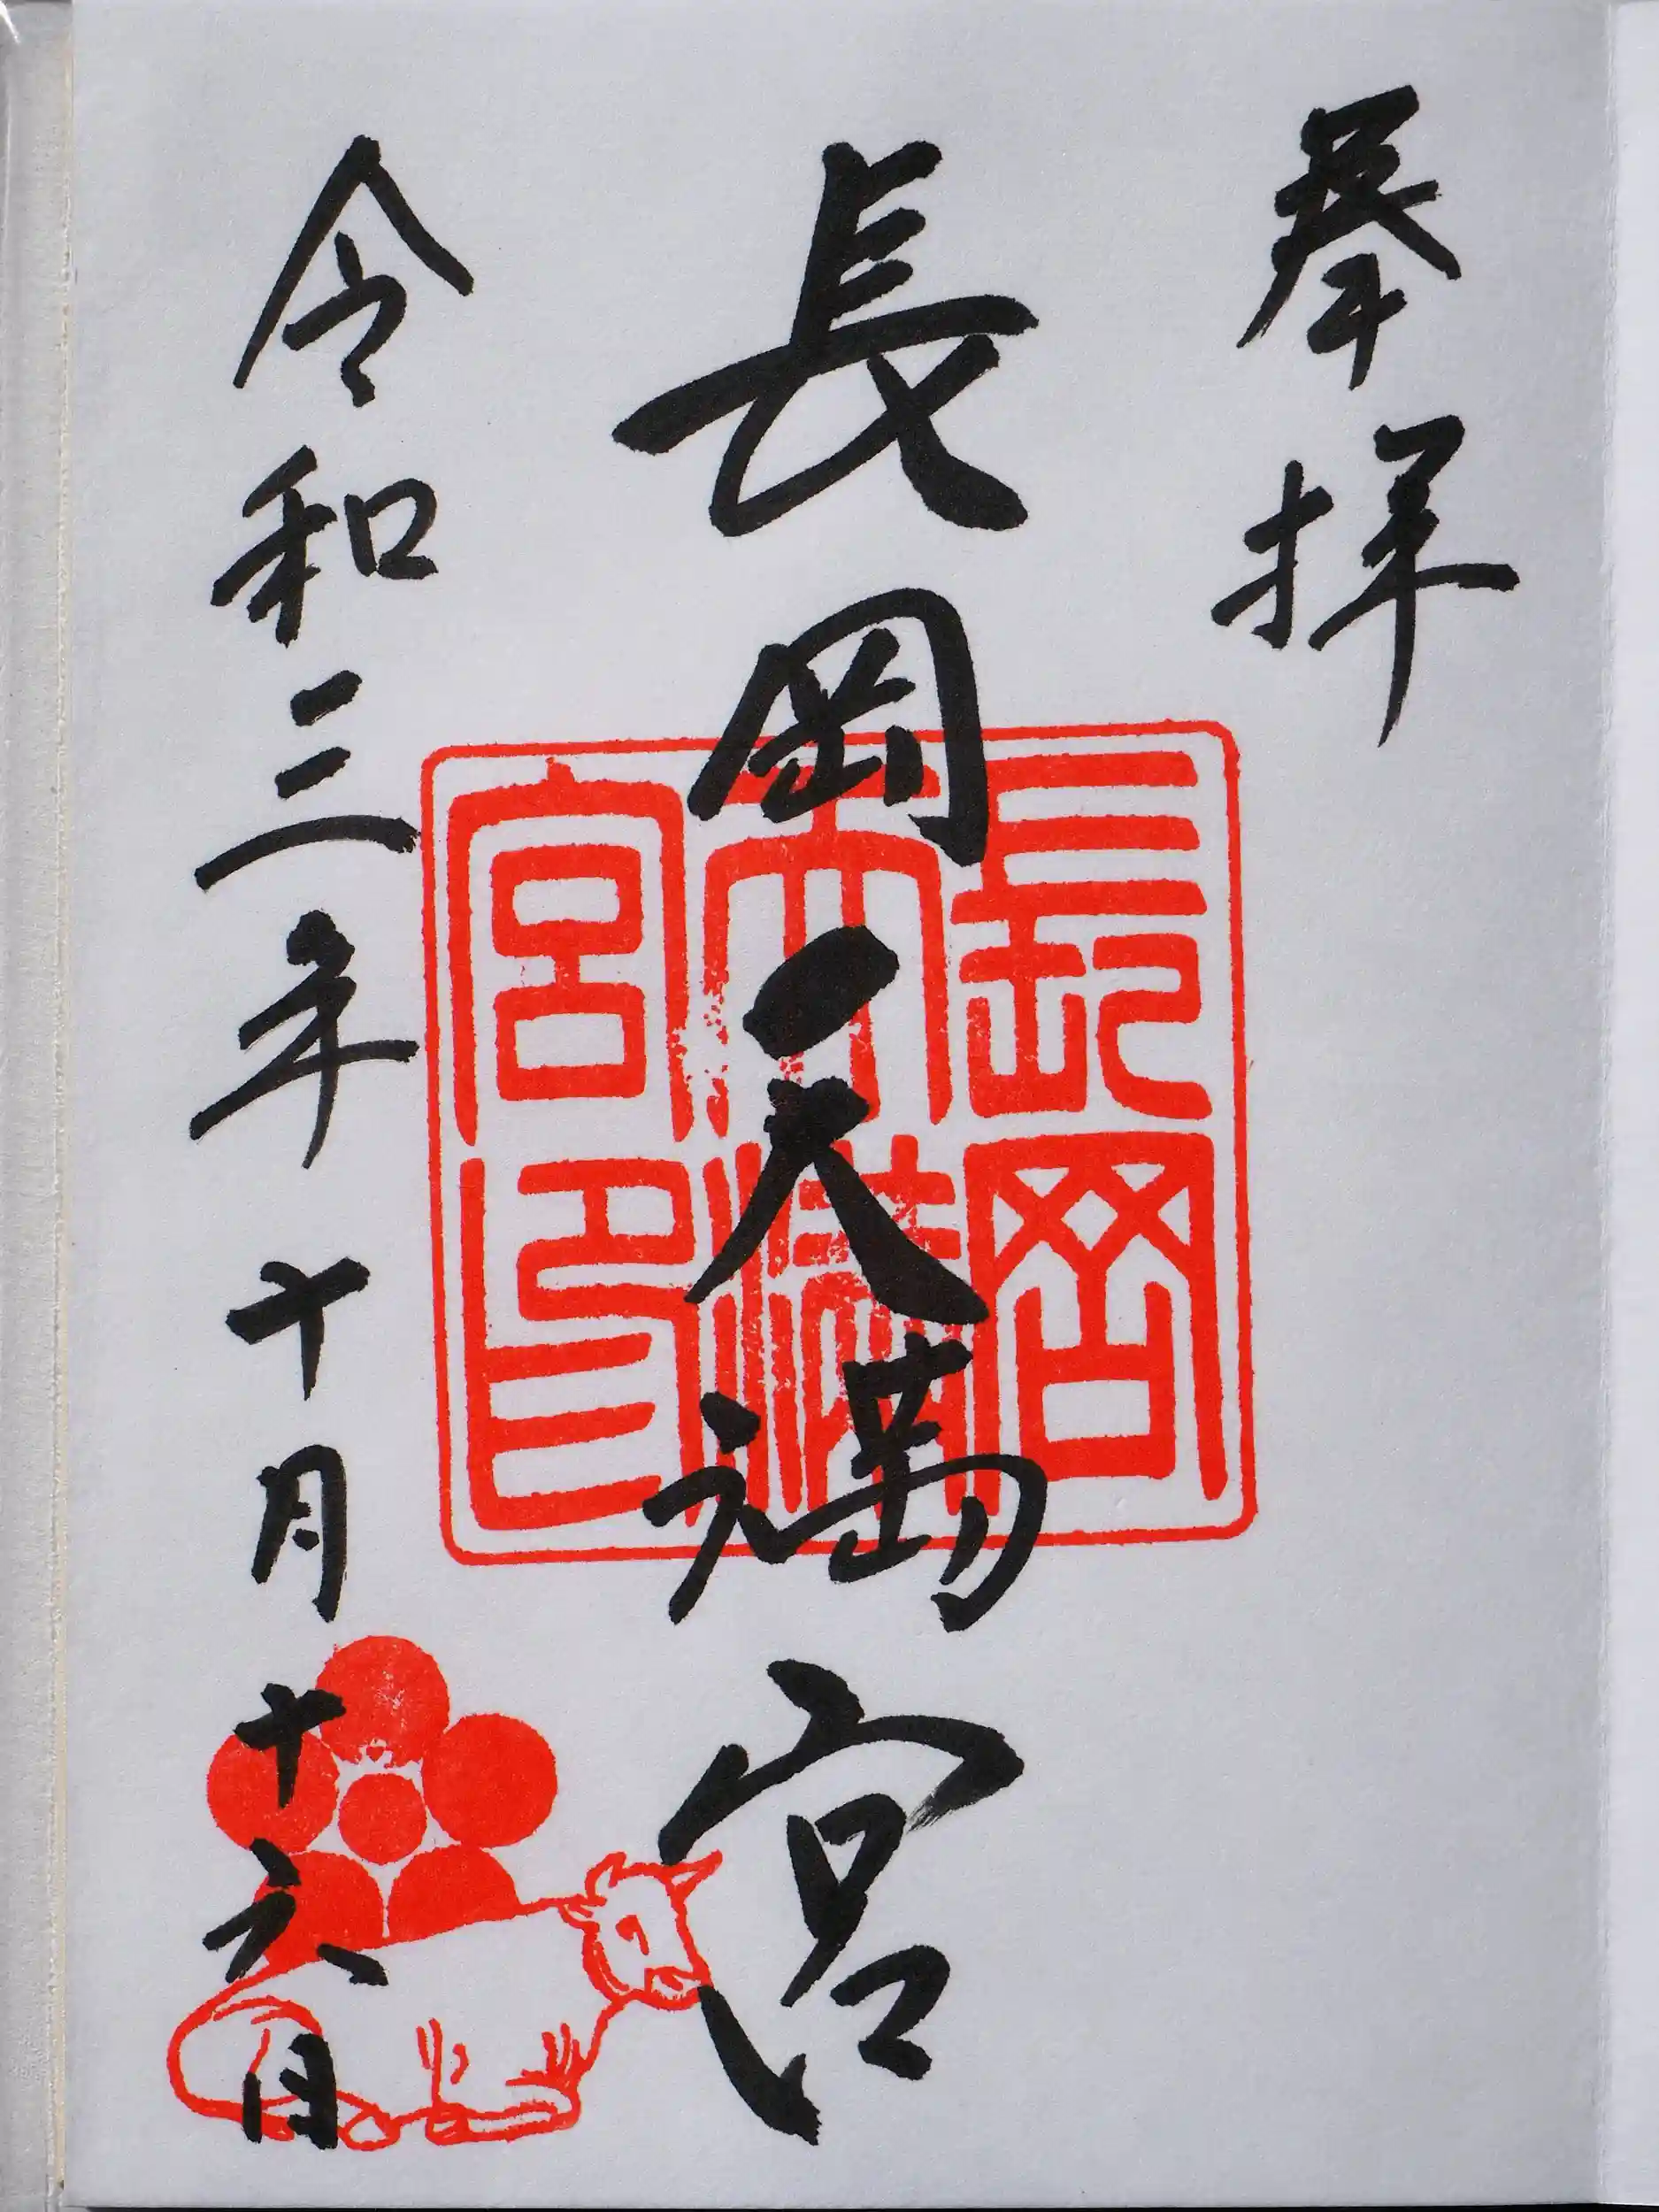 奉拝
長岡天満宮
長岡天満宮印
令和三年十月十六日